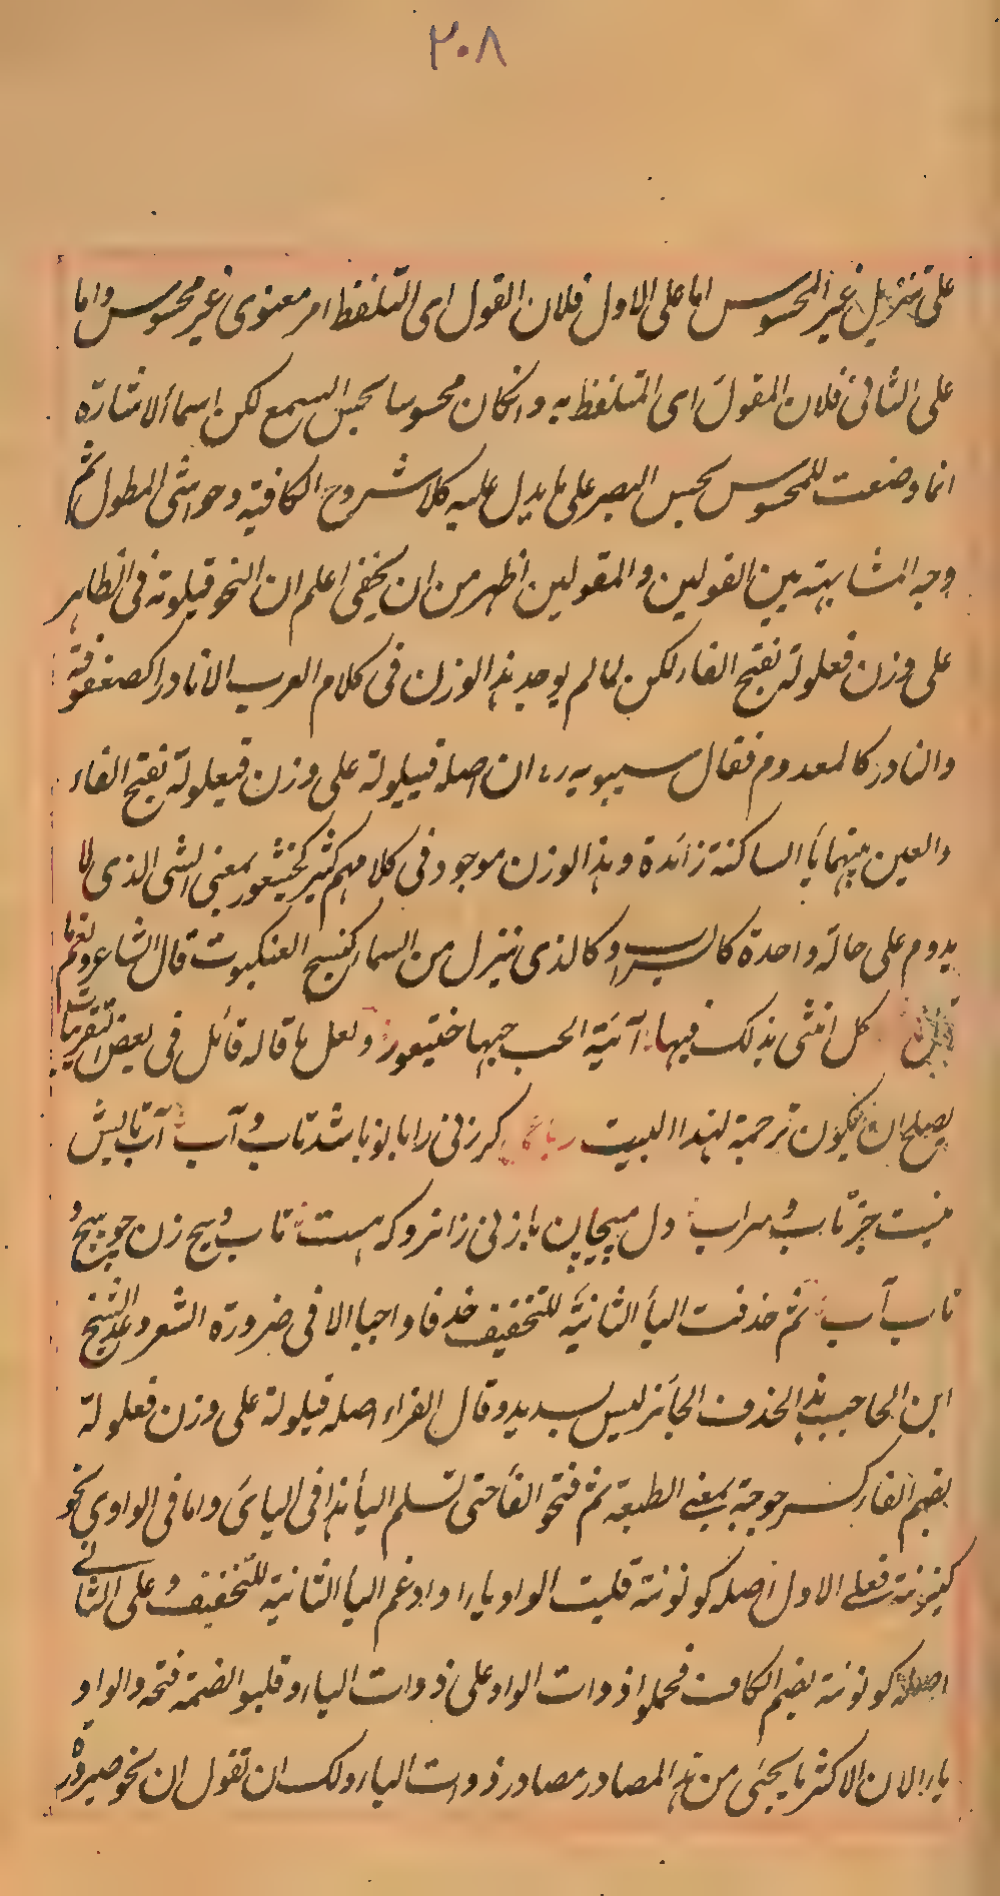 ٢٠٨
على تنزيل غير المحسوس اما على الاول فلان القول اى التلفظ امر معنوى غير محسوس واما
على الثانى فلان المقول اى المتلفظ به وانكان محسوسا بحس السمع لكن اسماء الاشارة
انما وضعت للمحسوس بحس البصر على ما يدل عليه كلا شروح الكافية وحواشى المطول ثم
وجه المشابهة بين القولين والمقولين اظهر من ان يخفى اعلم ان النحو قيلولة فى الظاهر
على وزن فعلولة بفتح الفاء لكن لما لم يوجد هذا الوزن فى كلام العرب الا نادرا كصعفوقة
والنادر كالمعدوم فقال سيبويه رح ان اصله قييلولة على وزن فيعلولة بفتح الفاء
والعين بينهما يأ الساكنة زائدة وهذا الوزن موجود فى كلامهم كثير كخيتعور بمعنى الشى الذى لا
يدوم على حالة واحدة كالسراب وكالذى ينزل من السماء كنسج العنكبوت قال الشاعر ونعم ما
كل انثى بذلك فيها آئية الحب حبها ختيعور ولعل ما قاله قائل فى بعض التقريبات
يصلح ان يكون ترجمة لهذا البيت كرزنى را بالوبا شد تاب و آب آب تابش
نيست جز تاب و سراب دل مپيچاپن با زنى زانرو كه هست تاب و پيچ زن چو پيچ و
تاب آب ثم حذفت اليأ الثانية للتخفيف حذفا واجبا الا فى ضرورة الشعر وعد الشيخ
ابن الحاجب هذا الحذف الجائز ليس بسديد وقال الفراء اصله قيلولة على وزن فعلولة
بضم الفاء كسرجوجة بمعنى الطبعة ثم فتحو الفأ حتى تسلم اليأ هذا فى اليائى واما فى الواوى نحو
كينونة فعلى الاول اصله كونونة قلبت الواو ياء وادغم اليأ الثانية للتخفيف وعلى الثانى
اصله كونونة بضم الكاف فحملوا ذوات الواو على ذوات الياء وقلبو الضمة فتحه والواو
ياء الا ان الاكثر ما يجئى من هذه المصادر مصادر ذوات الياء ولك ان تقول ان نحو صيرورة